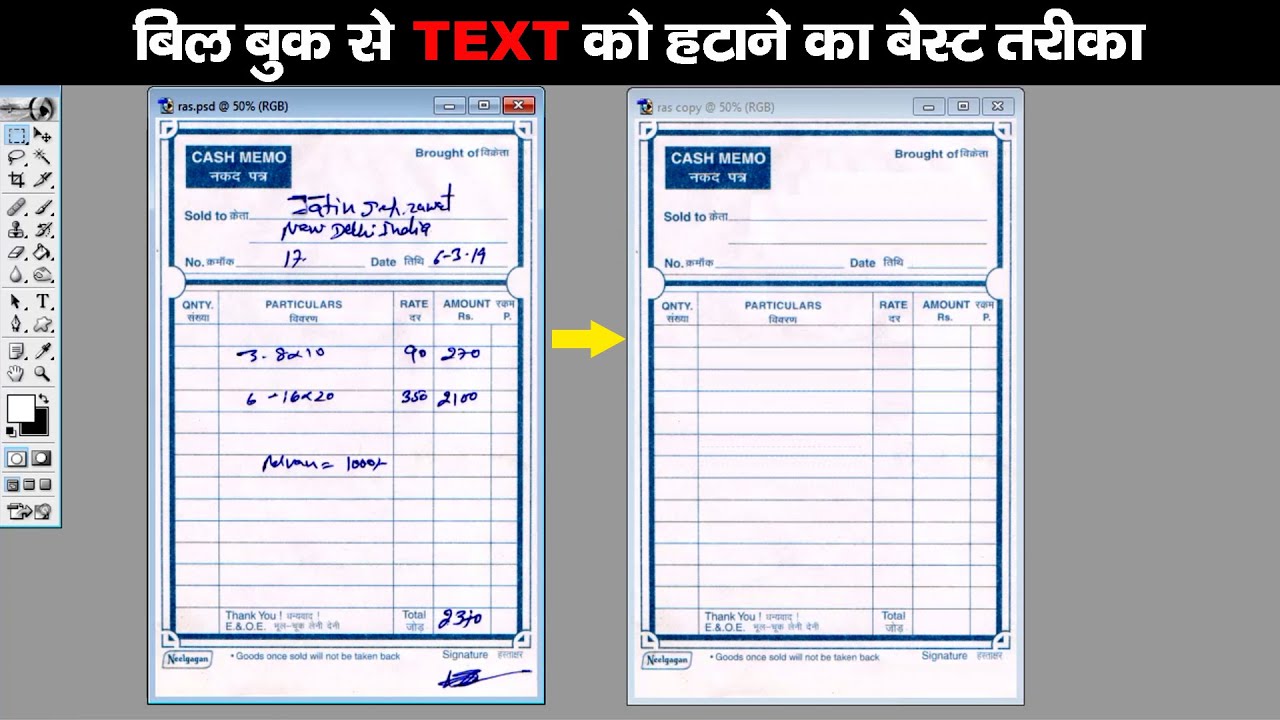 बिल बुक से TEXT को हटाने का बेस्ट तरीका
ras.psd @ 50% (RGB)
CASH MEMO
नकद पत्र
Brought of विक्रेता
Sold to क्रेता
New Delhi India
No. क्रमाँक 17 Date तिथि 6-3-19
QNTY. PARTICULARS RATE AMOUNT रकम
संख्या विवरण दर Rs. P.
3-8x10 90 270
6-16x20 350 2100
Advan = 1000/-
Thank You ! धन्यवाद ! Total
E.&O.E. भूल-चूक लेनी देनी जोड़ 2370
Neelgagan • Goods once sold will not be taken back Signature हस्ताक्षर
ras copy @ 50% (RGB)
CASH MEMO
नकद पत्र
Brought of विक्रेता
Sold to क्रेता
No. क्रमाँक Date तिथि
QNTY. PARTICULARS RATE AMOUNT रकम
संख्या विवरण दर Rs. P.
Thank You ! धन्यवाद ! Total
E.&O.E. भूल-चूक लेनी देनी जोड़
Neelgagan • Goods once sold will not be taken back Signature हस्ताक्षर